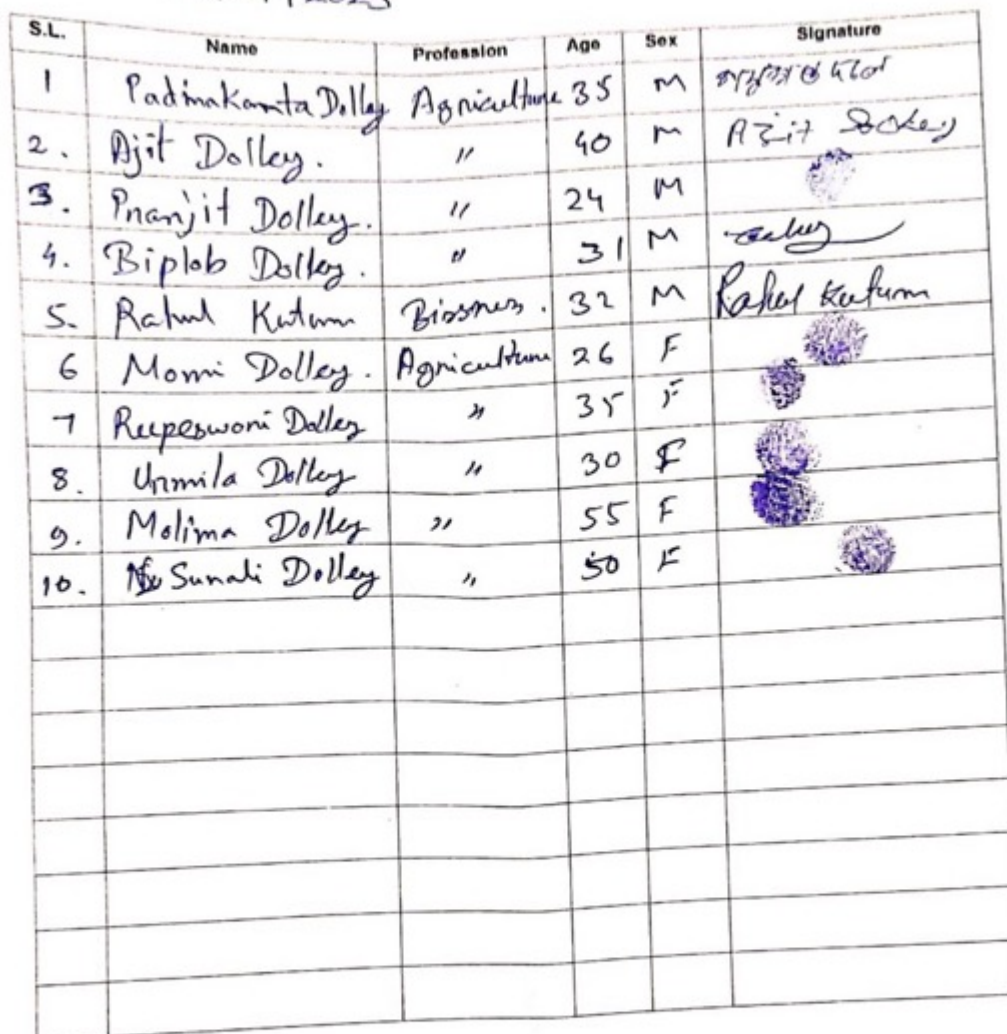 2023
S.L. Name Profession Age Sex Signature
1 Padmakanta Dolley Agriculture 35 M
2. Ajit Dolley. " 40 M Azit
3. Pranjit Dolley. " 24 M
4. Biplob Dolley. " 31 M
5. Rahul Kutum Bissnes. 32 M Rahul Kutum
6 Momi Dolley. Agriculture 26 F
7 Rupeswori Dolley " 35 F
8. Urmila Dolley " 30 F
9. Molima Dolley " 55 F
10. Sunali Dolley " 50 F